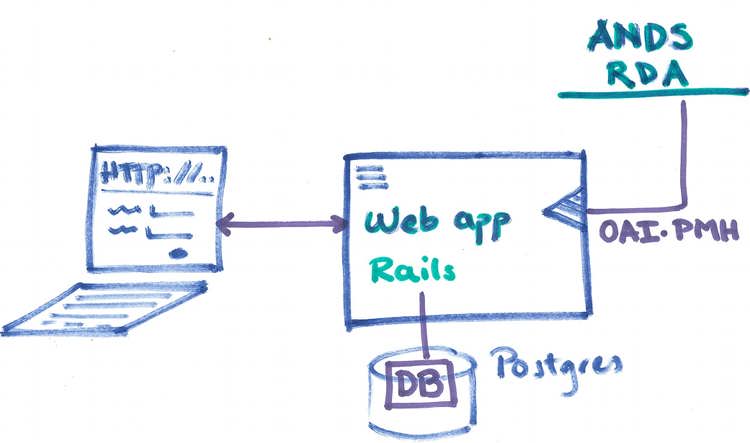 ANDS
RDA
HTTP://..
Web app
Rails
OAI.PMH
DB
Postgres